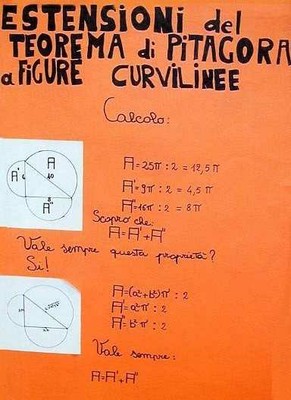 ESTENSIONI del
TEOREMA di PITAGORA
a FIGURE CURVILINEE
Calcolo:
A
A'
6
10
8
A''
A = 25π : 2 = 12,5 π
A' = 9π : 2 = 4,5 π
A'' = 16π : 2 = 8 π
Scopro che:
A = A' + A''
Vale sempre questa proprietà?
Sì!
A = (a²+b²)π : 2
A' = a²π : 2
A'' = b²π : 2
Vale sempre:
A = A' + A''